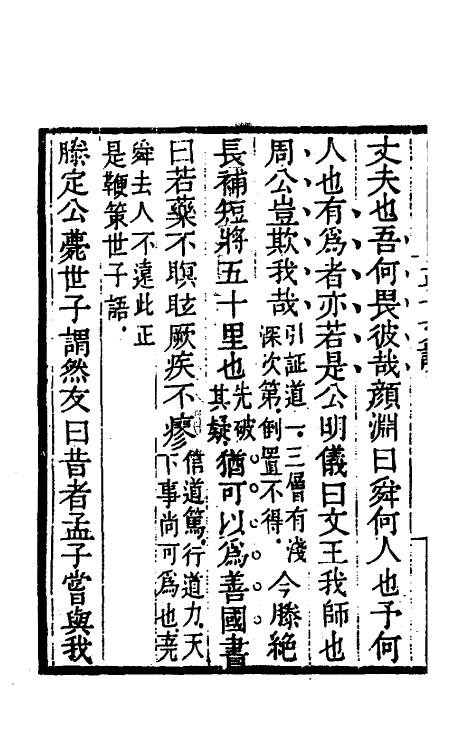 丈夫也吾何畏彼哉顏淵曰舜何人也予何
人也有爲者亦若是公明儀曰文王我師也
周公豈欺我哉引証道一三層有淺深次第倒置不得今滕絕
長補短將五十里也先破其疑猶可以爲善國書
曰若藥不瞑眩厥疾不瘳信道篤行道力天下事尚可爲也堯
舜去人不遠此正是鞭策世子語
滕定公薨世子謂然友曰昔者孟子嘗與我